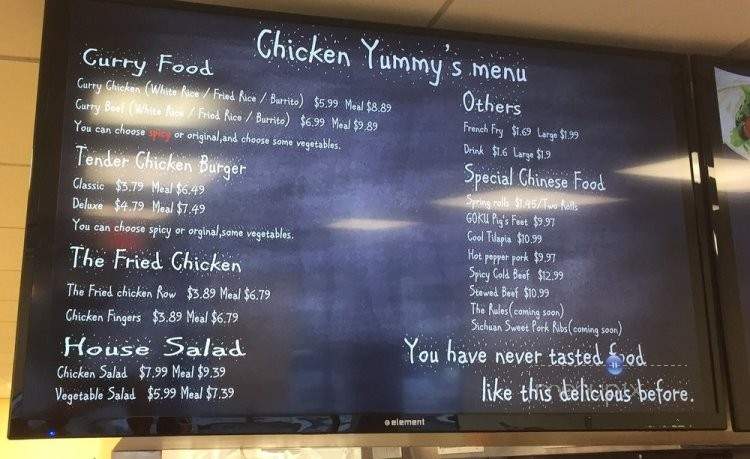 Chicken Yummy's menu
Curry Food
Curry Chicken (White Rice / Fried Rice / Burrito) $5.99 Meal $8.89
Curry Beef (White Rice / Fried Rice / Burrito) $6.99 Meal $9.89
You can choose spicy or original,and choose some vegetables.
Tender Chicken Burger
Classic $3.79 Meal $6.49
Deluxe $4.79 Meal $7.49
You can choose spicy or orginal,some vegetables.
The Fried Chicken
The Fried chicken Row $3.89 Meal $6.79
Chicken Fingers $3.89 Meal $6.79
House Salad
Chicken Salad $7.99 Meal $9.39
Vegetable Salad $5.99 Meal $7.39
Others
French Fry $1.69 Large $1.99
Drink $1.6 Large $1.9
Special Chinese Food
Spring rolls $1.45/Two Rolls
GOKU Pig's Feet $9.97
Cool Tilapia $10.99
Hot pepper pork $9.97
Spicy Cold Beef $12.99
Stewed Beef $10.99
The Rules(coming soon)
Sichuan Sweet Pork Ribs(coming soon)
You have never tasted food
like this delicious before.
element